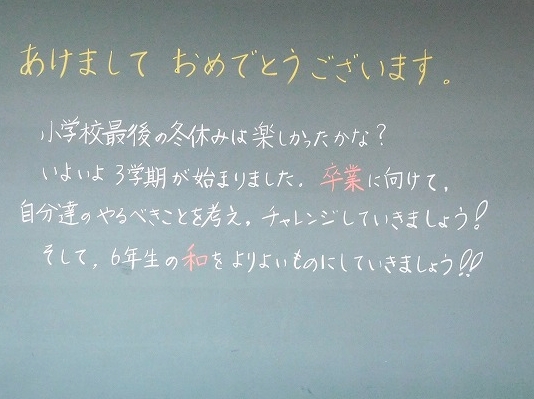 あけまして おめでとうございます。
小学校最後の冬休みは楽しかったかな？
いよいよ3学期が始まりました。卒業に向けて、
自分達のやるべきことを考え、チャレンジしていきましょう！
そして、6年生の和をよりよいものにしていきましょう!!